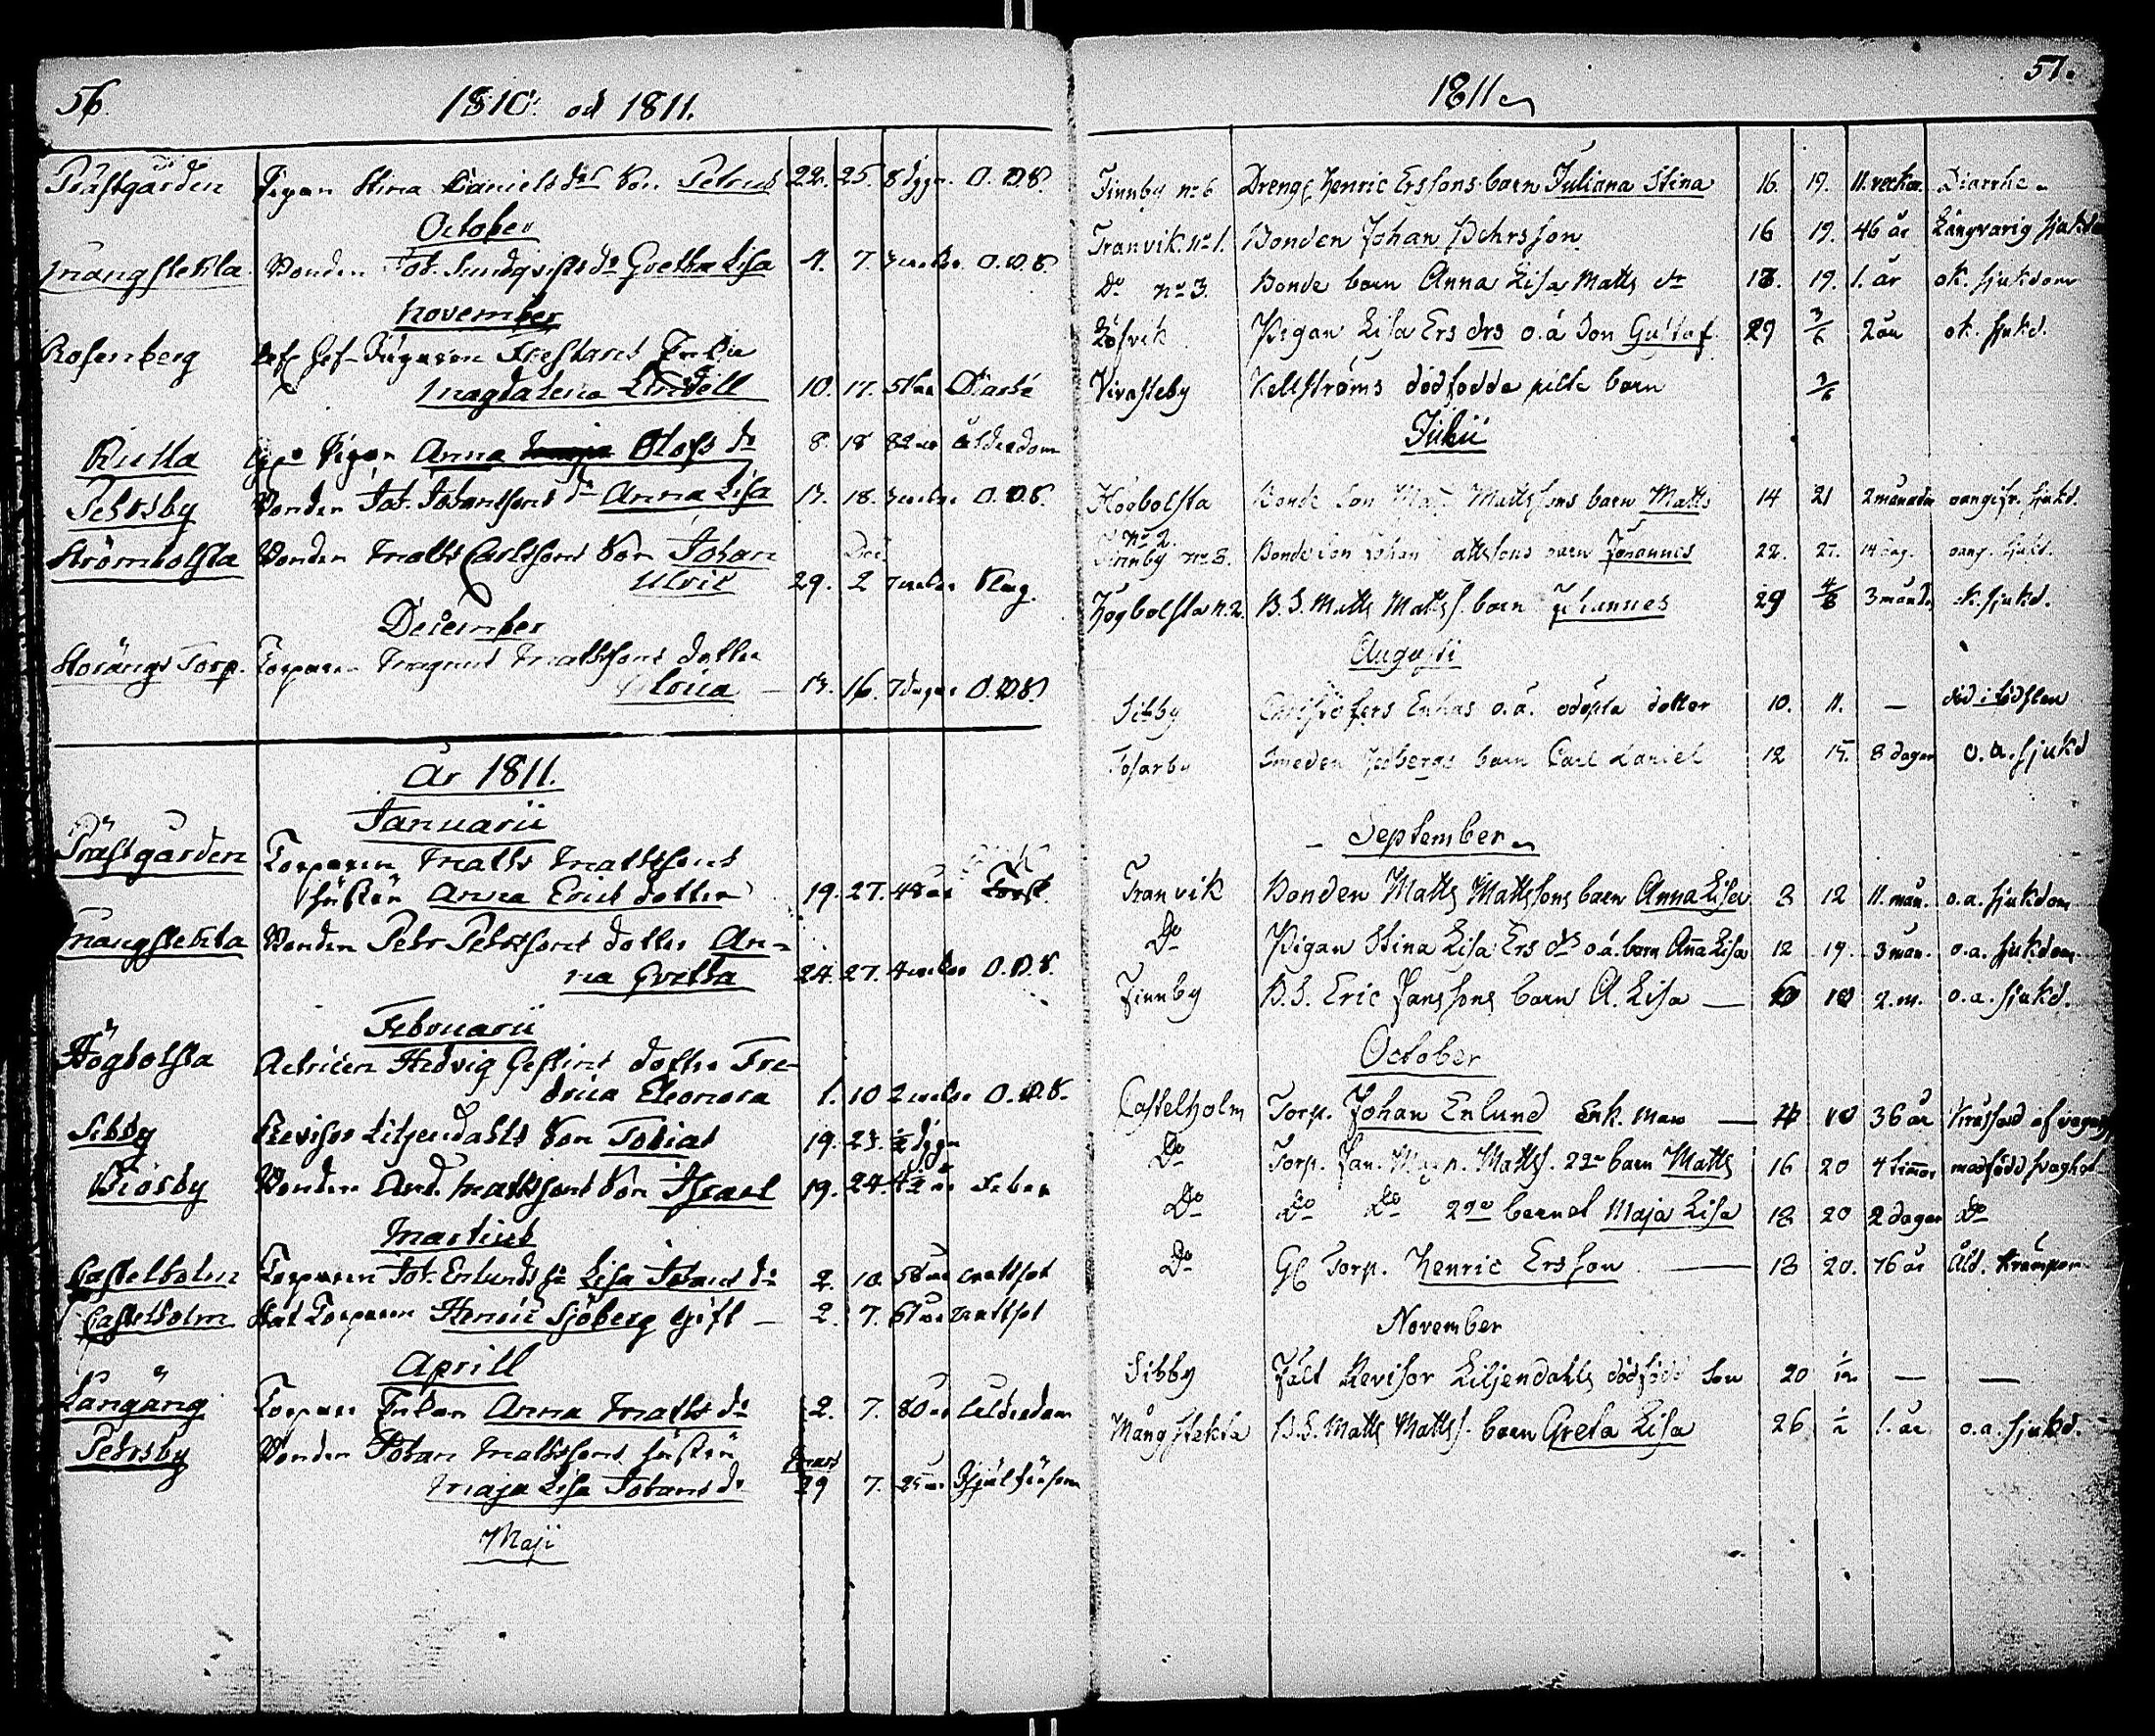 56.
1810. och 1811.
Prästgården Pigan Stina Danielsdrs Son Petrus 22. 25. 8 dygn O.B.S.
October
Mångstekta Bonden Joh. Sundqvists dr Gretha Lisa 4. 7. 3 veckor O.B.S.
November
Rosenberg
Magdalena Lindell 10. 17. 51 år
Kulla Pigan Anna Olofs dr 8. 18 82 år ålderdom
Pehrsby Bonden Joh. Johanssons dr Anna Lisa 13. 18. 3 veckor O.B.S.
Strömbolsta Bonden Matts Carlssons Son Johan Dec.
Ulric 29. 2 7 veckor Slag.
December
Storängs Torp. Torparen Magnus Mattssons dotter
Ulrica — 13. 16. 7 dagar O.B.S.
År 1811.
Januarii
Prästgården Torparen Matts Mattssons
hustru Anna Erics dotter 19. 27. 48 år
Mångstekta Bonden Pehr Pehrssons dotter An-
na Gretha 24. 27. 4 veckor O.B.S.
Februarii
Högbolsta Hedvig dotter Fre-
drica Eleonora 1. 10 2 veckor O.B.S.
Sibby Revisor Liljendahls Son Tobias 19. 23. ½ dygn
Björby Bonden And. Mattssons Son Israel 19. 24. Feber
Martius
Castelholm Torparen Joh. Enlunds hu Lisa Johans dr 2. 10. 58 år
Castelholm Torparen Henric Sjöberg gift — 2. 7. 61 år
Aprill
Långäng Torpare Enkan Anna Matts dr 2. 7. 80 år ålderdom
Pehrsby Bonden Johan Mattssons hustru Mars
Maja Lisa Johans dr 29 7. 25 år
Maji
57.
1811
Finnby No 6 Drengs Henric Erssons barn Juliana Stina 16. 19. 11. veckor. Diarrhe
Tranvik. No 1. Bonden Johan Pehrsson 16 19. 46 år Långvarig sjukd
Do No 3. Bonde barn Anna Lisa Matts dr 18. 19. 1. år ok. sjukdom
Löfvik Pigan Lisa Ers drs o.ä. Son Gustaf 29 3/6 2 år ok. sjukd.
Vivasteby Kellströms dödfödda barn 3/6
Julii
Högbolsta Bonde Son Matts Mattssons barn Matts 14 21 2 månader oangifv. sjukd.
No 2.
Finnby No 3. Bonde Son Johan Mattssons barn Johannes 22. 27. 14 dag. oang. sjukd.
Högbolsta N. 2. B.S. Matts Mattss. barn Johannes 29 4/8 3 månad. ok. sjukd.
Augusti
Sibby Enkas o.ä. odöpta dotter 10. 11. — död i födslen
Tosarby Smeden barn Carl Daniel 12 15. 8 dagar o.a. sjukd
September
Tranvik Bonden Matts Mattssons barn Anna Lisa 8 12 11. mån. o.a. sjukdom
Do Pigan Stina Lisa Ers drs o.ä. barn Anna Lisa 12 19. 3 mån. o.a. sjukdom.
Finnby B.S. Eric Janssons barn A. Lisa — 10 2. m. o.a. sjukd.
October
Castelholm Torp. Johan Enlund Enk. man — 4 10 36 år
Do Torp. Jan. Magn. Mattss. 2ne barn Matts 16 20 4 timar medfödd svaghet
Do Do Do 2dra barnet Maja Lisa 18 20 2 dagar Do
Do Gl Torp. Henric Ersson — 18 20. 76 år Åld. krämpor
November
Sibby Fält Revisor Liljendahls dödfödd Son 20 1/12 — —
Mångstekta B.S. Matts Mattss. barn Greta Lisa 26 1/12 1. år o.a. sjukd.